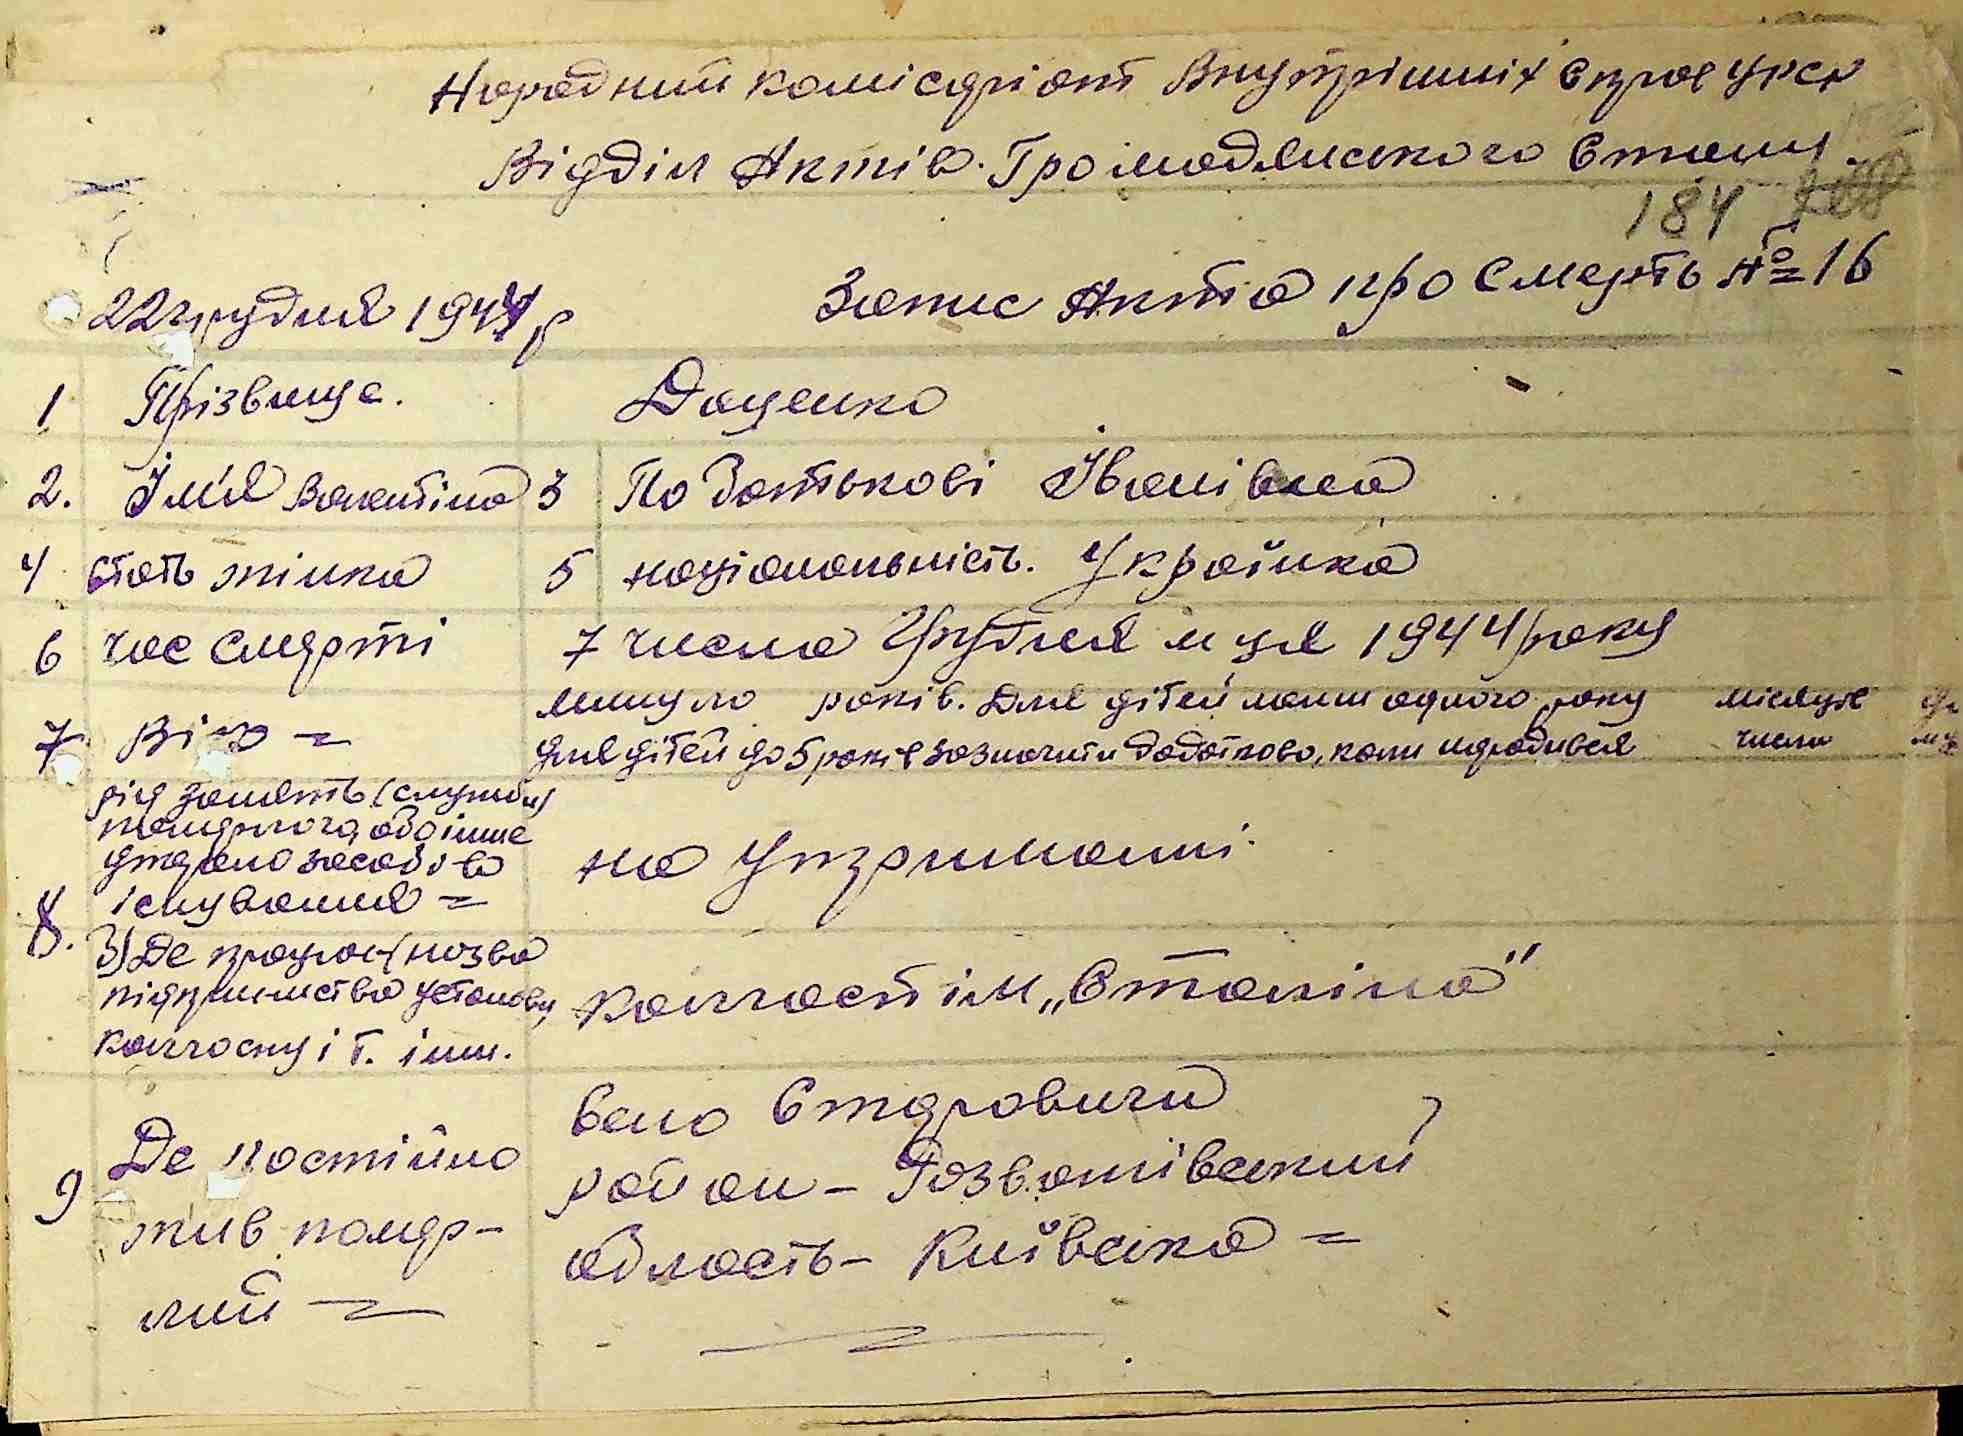 Народний комісаріат Внутрішніх Справ УРСР
Відділ Актів Громадянського Стану
184
22 грудня 1944 р Запис Акта про Смерть № 16
1 Прізвище. Даценко
2. Ім'я Валентіна 3 По Батькові Іванівна
4 стать жінка 5 національність. Українка
6 час смерті 7 числа Грудня м ця 1944 року
минуло років. Для дітей менш одного року місяців
7 Вік =
для дітей до 5 років зазначити додатково, коли народився числа
8. рід занять (служби)
померлого, або інше
джерело засобів
існування = на утриманні.
З) Де працює (назва
підприємства установи,
колгоспу і т. інш. колгосп ім „Сталіна"
9 Де постійно
жив помер-
лий =
село Старовичи
район – Розважівський
область – Київська =